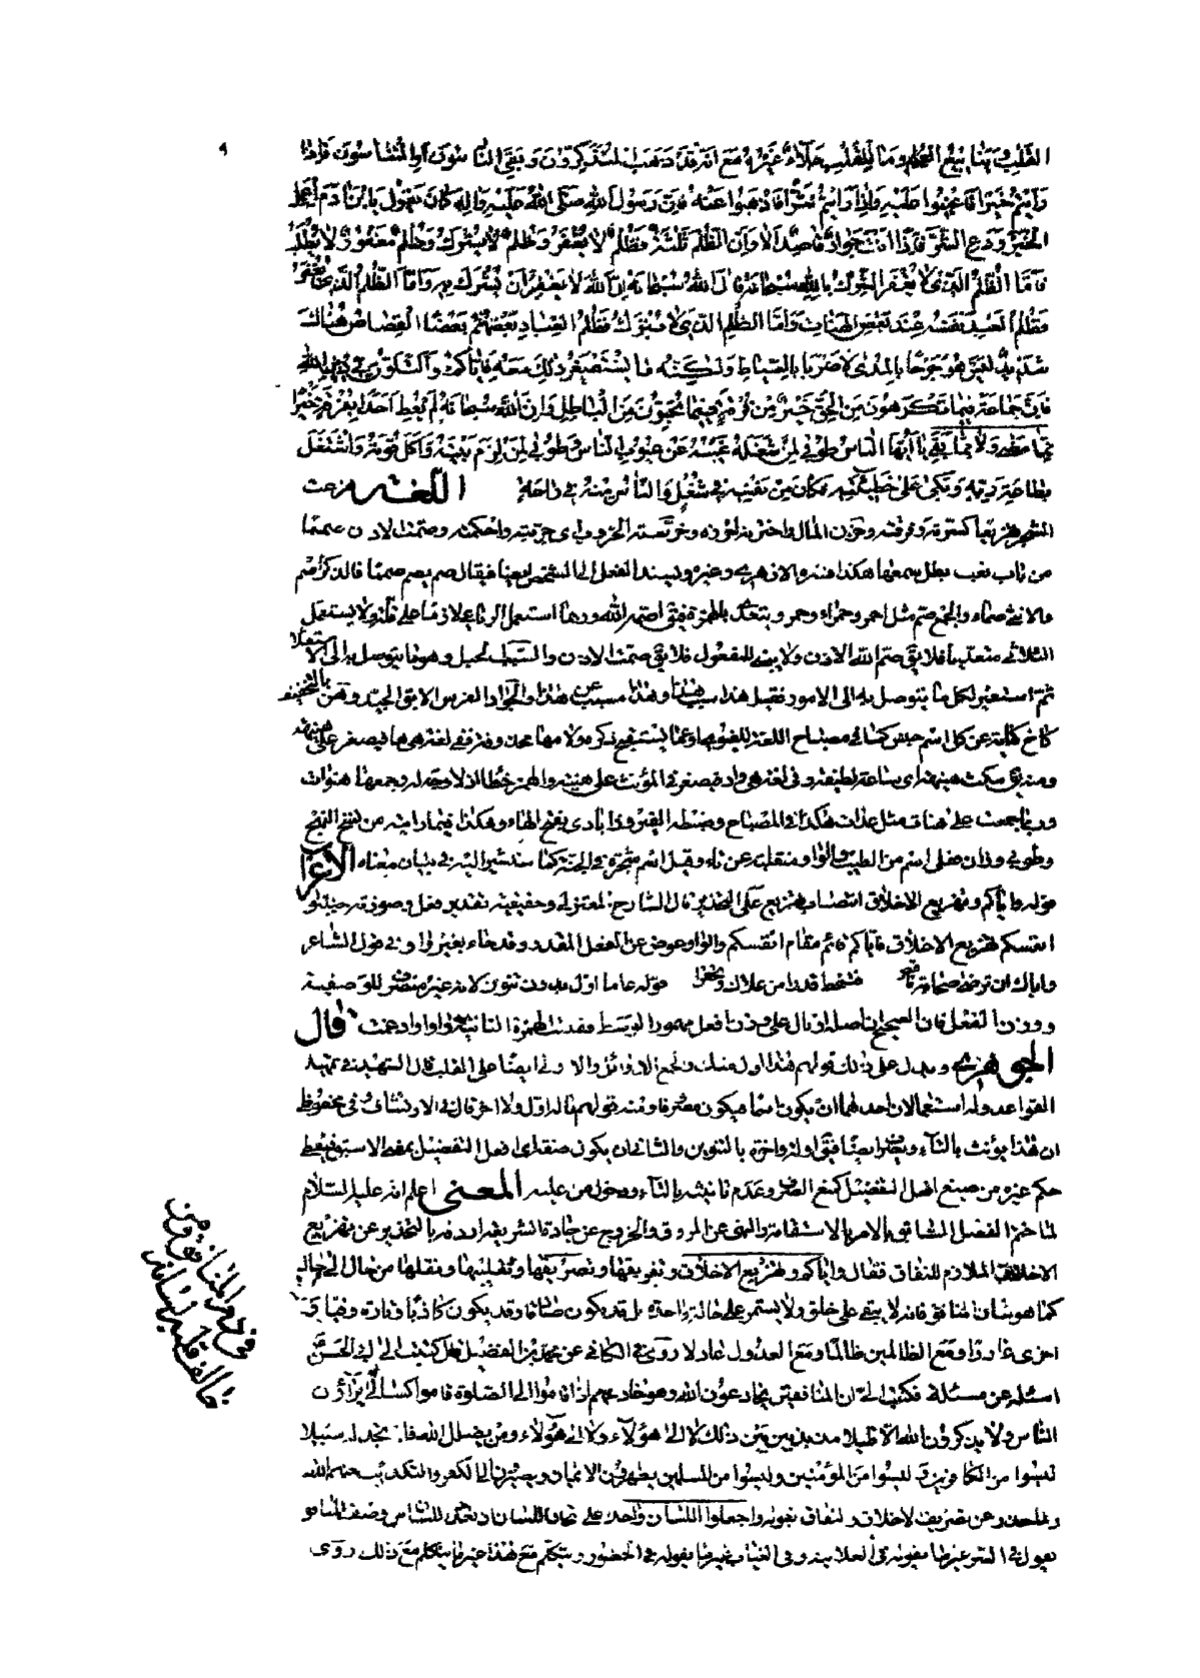 القلب ينابيع العلم وما للقلب جلاء غيره مع انه قد ذهب المتذكرون وبقي الناسون او المتناسون فاذا
رايتم خيرا فاعينوا عليه واذا رايتم شرا فاذهبوا عنه فان رسول الله صلى الله عليه واله كان يقول يا بن ادم اعمل
الخير ودع الشر فاذا انت جواد قاصد الا وان الظلم ثلثة فظلم لا يغفر وظلم لا يترك وظلم مغفور لا يطلب
فاما الظلم الذي لا يغفر الشرك بالله سبحانه قال الله سبحانه ان الله لا يغفر ان يشرك به واما الظلم الذي يغفر
فظلم العبد نفسه عند بعض الهنات واما الظلم الذي لا يترك فظلم العباد بعضهم بعضا القصاص هناك
شديد ليس هو جرحا بالمدى ولا ضربا بالسياط ولكنه ما يستصغر ذلك معه فاياكم والتلون في دين الله
فان جماعة فيما تكرهون من الحق خير من فرقة فيما تحبون من الباطل وان الله سبحانه لم يعط احدا بفرقة خيرا
مما مضى ولا مما بقي يا ايها الناس طوبى لمن شغله عيبه عن عيوب الناس وطوبى لمن لزم بيته واكل قوته واشتغل
بطاعة ربه وبكى على خطيئته فكان من نفسه في شغل والناس منه في راحة اللغة هزعت
الشيء تهزيعا كسرته وفرقته وخزن المال واختزنه احرزه وصمت الاذن صمما
من باب تعب بطل سمعها هكذا فسره الازهري وغيره ويسند الفعل الى الشخص ايضا فيقال صم يصم صمما فالذكر اصم
والانثى صماء والجمع صم مثل احمر وحمراء وحمر ويتعدى بالهمزة فيقال اصمه الله وربما استعمل الرباعي لازما على قلة ولا يستعمل
الثلاثي متعديا فلا يقال صم الله الاذن ولا يبنى للمفعول فلا يقال صمت الاذن والسبب الحبل وهو ما يتوصل به الى الاستعلاء
ثم استعير لكل ما يتوصل به الى الامور فقيل هذا سبب هذا وهذا مسبب عن هذا والجواد الفرس السابق الجيد وهن بالتخفيف
كاخ كناية عن كل اسم جنس كما في مصباح اللغة للفيومي وعما يستقبح ذكره ولامها محذوفة ففي لغة هي هاء فيصغر على هنيهة
ومنه يقال مكث هنيهة اي ساعة لطيفة وفي لغة هي واو فيصغر في المؤنث على هنية والهمز خطأ اذ لا وجه له وجمعها هنوات
وربما جمعت على هنات مثل عدات هكذا في المصباح وضبطه الفيروزابادي بفتح الهاء وهكذا فيما رايته من نسخ النهج
وطوبى وزان فعلى اسم من الطيب والواو منقلبة عن ياء وقيل اسم شجرة في الجنة كما سنشير اليه في بيان معناه الاعراب
قوله واياكم وتهزيع الاخلاق انتصاب تهزيع على التحذير قال الشارح المعتزلي وحقيقته تقدير فعل وصورته جنبوا
انفسكم تهزيع الاخلاق فاياكم قائم مقام انفسكم والواو عوض عن الفعل المقدر وقد جاء بغير واو في قول الشاعر
قوله عاما اول بدون تنوين لانه غير منصرف للوصفية
ووزن الفعل فان الصحيح ان اصله اوأل على وزن افعل مهموز الوسط فقلبت الهمزة الثانية واوا وادغمت قال
الجوهري ويدل على ذلك قولهم هذا اول منك والجمع الاوائل والاوالي ايضا على القلب قال الشهيد في تمهيد
القواعد وله استعمالان احدهما ان يكون اسما فيكون مصروفا ومنه قولهم ما له اول ولا اخر قال في الارتشاف وفي محفوظي
ان هذا يؤنث بالتاء ويصرف ايضا فيقال اولة واخرة بالتنوين والثاني ان يكون صفة اي افعل التفضيل بمعنى الاسبق فيعطى
حكم غيره من صيغ افعل التفضيل كمنع الصرف وعدم تانيثه بالتاء ودخول من عليه المعنى اعلم انه عليه السلام
لما ختم الفصل السابق بالامر بالاستقامة والنهي عن المروق والخروج عن جادة الشريعة اردفه بالتحذير عن تهزيع
الاخلاق الملازم للنفاق فقال واياكم وتهزيع الاخلاق وتفريقها وتصريفها وتقليبها ونقلها من حال الى حال
كما هو شان المنافق فانه لا يبقى على خلق ولا يستمر على حالة واحدة بل قد يكون صادقا وقد يكون كاذبا وتارة وفيا
اخرى غادرا ومع الظالمين ظالما ومع العدول عادلا روى في الكافي عن محمد بن الفضيل قال كتبت الى ابي الحسن
اسئله عن مسئلة فكتب الي ان المنافقين يخادعون الله وهو خادعهم اذا قاموا الى الصلوة قاموا كسالى يراؤن
الناس ولا يذكرون الله الا قليلا مذبذبين بين ذلك لا الى هؤلاء ولا الى هؤلاء ومن يضلل الله فلن تجد له سبيلا
ليسوا من الكافرين وليسوا من المؤمنين وليسوا من المسلمين يظهرون الايمان ويصيرون الى الكفر والتكذيب لعنهم الله
ولما حذر عن تصريف الاخلاق والنفاق بقوله واجعلوا اللسان واحدا
يقول في السر غير ما يقوله في العلانية وفي الغياب غير ما يقوله في الحضور ويتكلم مع هذا غير ما يتكلم مع ذلك روى